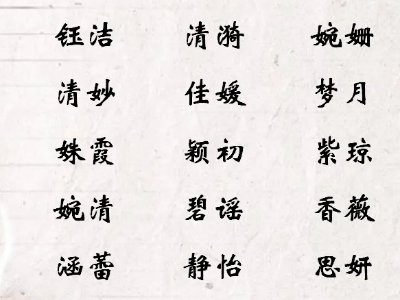 钰洁 清漪 婉姗
清妙 佳媛 梦月
姝霞 颖初 紫琼
婉清 碧谣 香薇
涵蕾 静怡 思妍